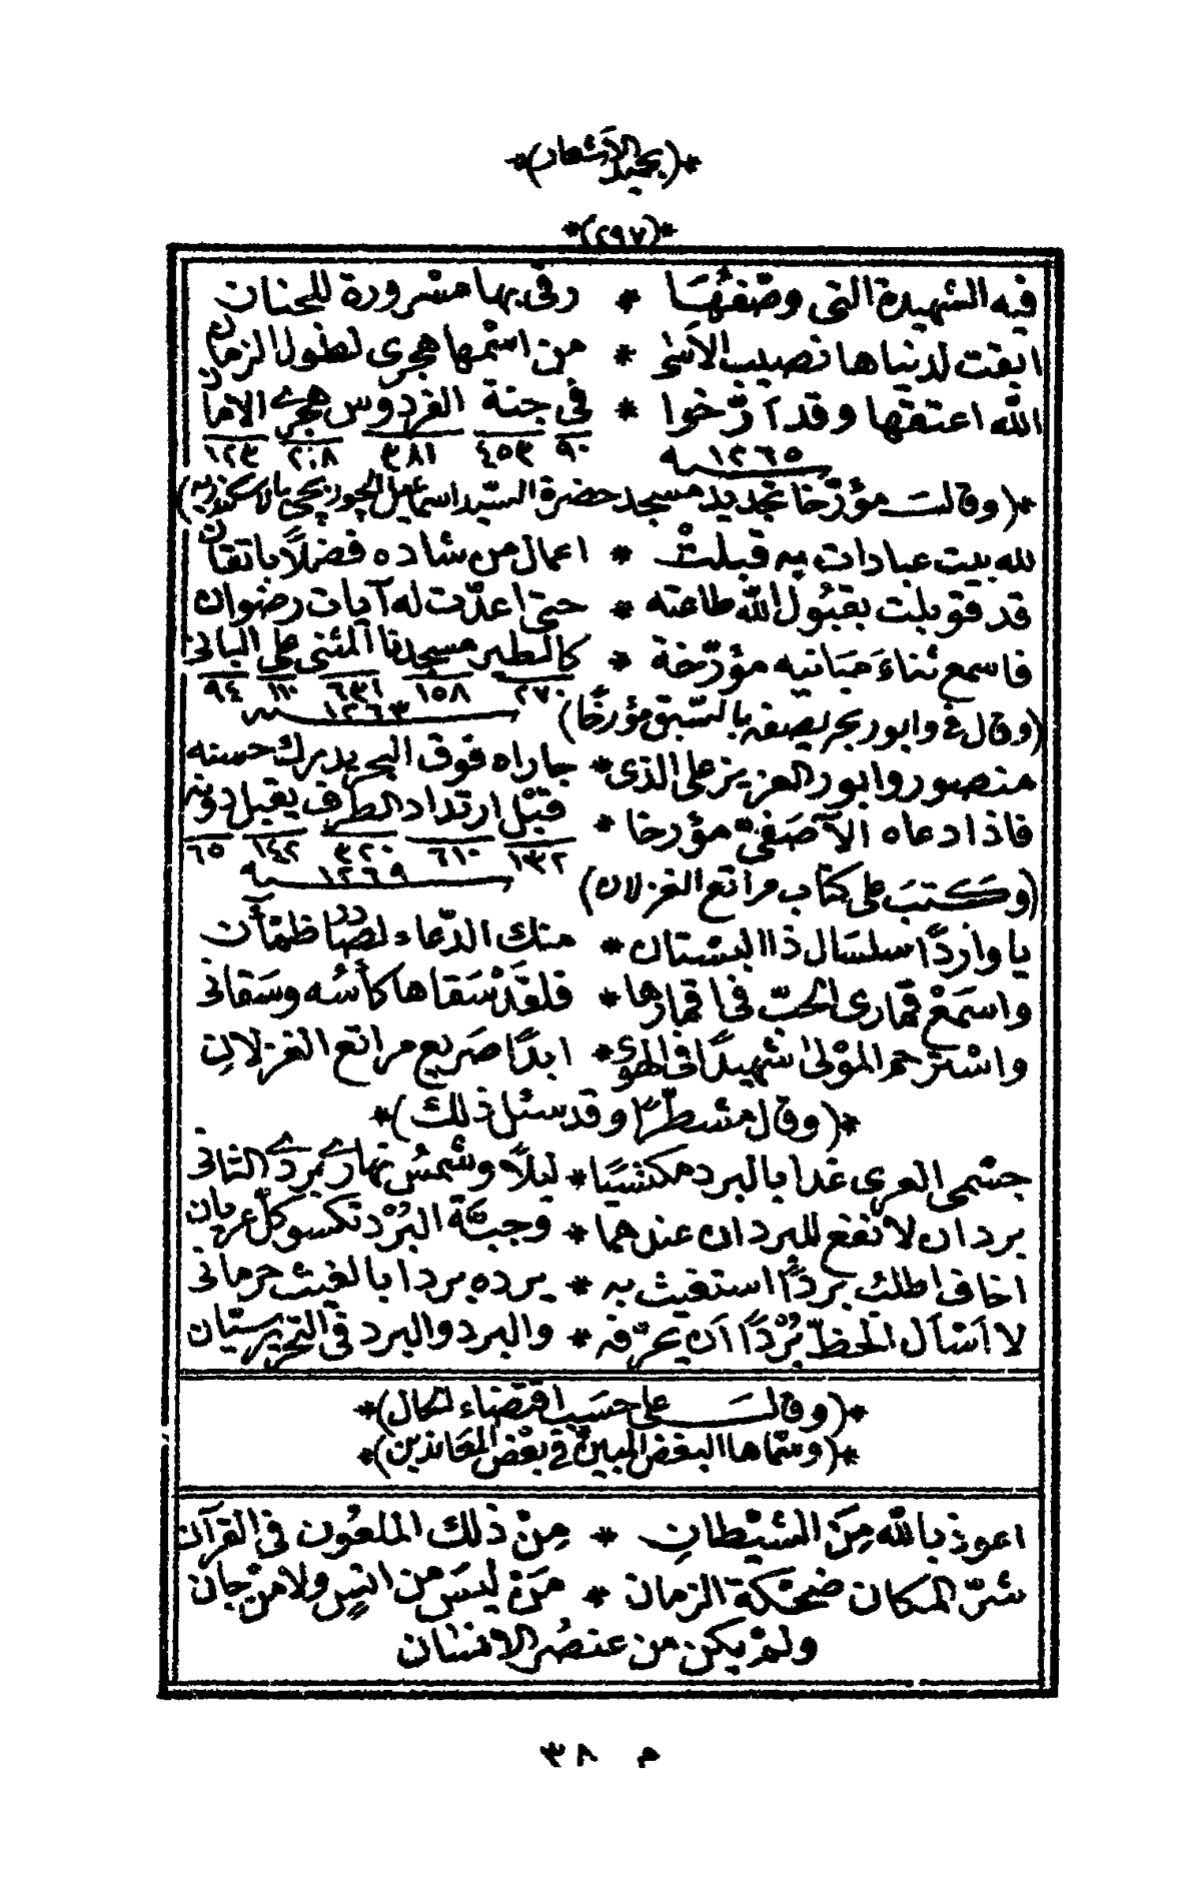 *(بحيد الأشعار)*
*(٢٩٧)*
فيه الشهيدة التى وصفتُهَا * رقى بها مسْرورة للجنان
ابقت لدنياها نصيب الأسَى * من اسْمها هجرى لطول الزمان
الله اعتقها وقد أرّخوا * في جنة الفردوس هجرى الامان
٩٠ ٤٥٣ ٣٨١ ٢٠٨ ١٢٣
١٢٦٥ سنه
*(وقالـــت مؤرّخا تجديد مسجد حضرة السيّد اسماعيل بالاسكندريه)
لله بيت عبادات به قبلتْ * اعمال من شاده فضلاً باتقان
قد قوبلت بقبُول الله طاعته * حتى اعدّت له آيات رضوان
فاسمع ثناءَ مَبَانيه مؤرّخة * كالطير مسجدنا المثنى على البانى
٢٧٠ ١٥٨ ٦٣١ ١١٠ ٩٤
١٢٦٣ سنه
(وقال في وابور بحر يصفه بالسّبق مؤرخًا)
منصور وابور العزيز على الذى * جاراه فوق البحر يدرك حسنه
فاذا دعاه الآصَفيّ مؤرخا * قبْل ارتداد الطرف يقبل دونه
١٣٢ ٦١٠ ٣٢٠ ١٤٢ ٦٥
١٢٦٩ سنه
(وَكتبَ على كتاب مراتع الغزلان)
يا واردًا سلسَال ذا البستان * منك الدّعاء لصَادٍ ظمْآن
واسمَعْ قمارى الحبّ فى اقمارها * فلقَدْ سَقاها كأسُه وسَقانى
واسْترحم الموْلىٰ شهيدًا فى الهوى * ابدًا صَريع مراتع الغزلانِ
*(وقال مشطّرًا وقد سئل ذلك)*
جسْمى العرى غدا بالبرد مكتسيًا * ليلاً وشمسُ نهارى بردى الثانى
بردان لا نفع للبردان عندهما * وجبّة البُرْد تكسو كلّ عريان
اخاف اطلب بردًا استغيث به * يرده بردا بالغيث حرمانى
لا اسْأل الحظّ بُرْدًا اَن يحرّفه * والبرد والبرد في التحرير سيّان
*(وقالــــت على حسَب اقتضاء الحال)*
*(وسمّاها البغض المبين في بعْض المعَاندين)*
اعوذ بالله مِنَ الشيْطانِ * مِنْ ذلك الملعُون فى القرآن
شرّ المكان ضحْكة الزمان * مَنْ ليسَ من انسٍ ولا منْ جان
ولمْ يكن من عنصُر الانسَان
م ٣٨